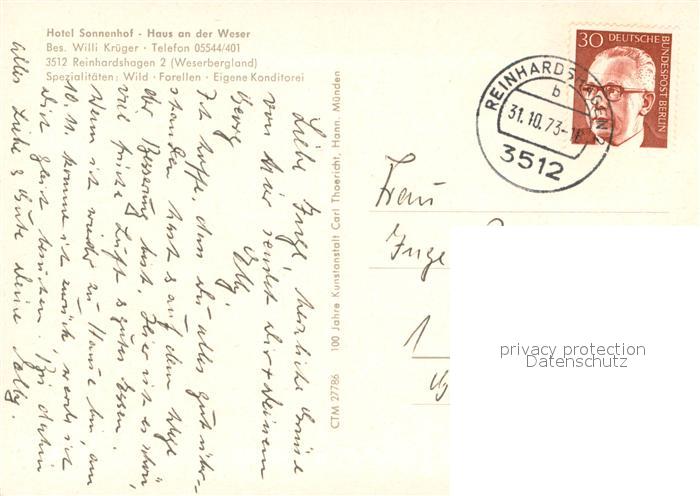 Hotel Sonnenhof - Haus an der Weser
Bes. Willi Krüger · Telefon 05544/401
3512 Reinhardshagen 2 (Weserbergland)
Spezialitäten: Wild · Forellen · Eigene Konditorei
Liebe Inge, herzliche Grüße
von hier sendet Dir & Deinem
Georg
Ich hoffe, dass Du alles gut über-
standen hast & auf dem Wege
der Besserung bist. Hier ist es schön,
viel frische Luft & gutes Essen.
Wenn ich wieder zu Hause bin, am
10.11. komme ich zurück, werde ich
Dich gleich besuchen. Bis dahin
alles Liebe & Gute Deine
CTM 27786 100 Jahre Kunstanstalt Carl Thoericht, Hann. Münden
30 DEUTSCHE BUNDESPOST BERLIN
REINHARDSHAGEN 2
b
31.10.73
3512
Frau
Inge
1
privacy protection
Datenschutz